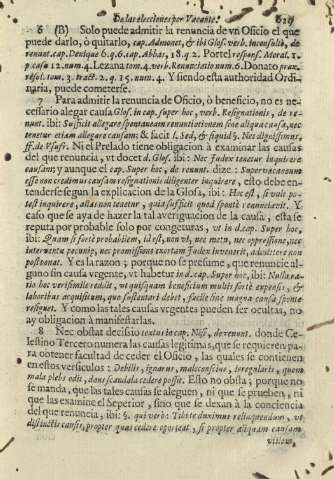 De las elecciones por Vacante. 619
6 (B) Solo puede admitir la renuncia de vn Oficio el que
puede darlo, ò quitarlo, cap. Admonet, & ibi Glos. verb. inconsulto, de
renunt. cap. Denique 6. q. 6. cap. Abbas, 18. q. 2. Portel respons. Moral. 1.
p. caso 12. num. 4. Lezana tom. 4. verb. Renuntiatio num. 6. Donato
tom. 3. tract. 2. q. 15. num. 4. Y siendo esta authoridad Ordi-
naria, puede cometerse.
7 Para admitir la renuncia de Oficio, ò beneficio, no es ne-
cessario alegar causa Glos. in cap. super hoc, verb. Resignationis, de re-
nunt. ibi: Sufficit allegare renuntiationem sine aliqua causa, nec
tenetur etiam allegare causam; & facit l. Sed, & siquid §.
ff. de Vsufr. Ni el Prelado tiene obligacion à examinar las causas
del que renuncia, vt docet d. Glos. ibi: Nec Iudex tenetur inquirere
causam; y aunque el cap. Super hoc, de renunt. dize: Supervacaneum
esse non credimus causam resignationis diligenter inquirere, esto debe en-
tenderse segun la explicacion de la Glosa, ibi: Hoc est, si vult po-
test inquirere, alias non tenetur, quia sufficit quod spontè renuntiavit. Y
caso que se aya de hazer la tal averiguacion de la causa, esta se
reputa por probable solo por congeturas, vt in d. cap. Super hoc,
ibi: Quam si fortè probabilem, id est, non vi, nec metu, nec oppressione, nec
interventu pecuniæ, nec promissione exactum Iudex invenerit, admittere non
postponat. Y es la razon; porque no se presume, que renuncie al-
guno sin causa vrgente, vt habetur in d. cap. Super hoc, ibi: Nulla ra-
tio hoc verisimile reddit, vt quisquam beneficium multis fortè expensis, &
laboribus acquisitum, quo sustentari debet, facile sine magna causa sponte
resignet. Y como las tales causas vrgentes pueden ser ocultas, no
ay obligacion à manifestarlas.
8 Nec obstat decisio textus in cap. Nisi, de renunt. donde Ce-
lestino Tercero numera las causas legitimas, que se requieren pa-
ra obtener facultad de ceder el Oficio, las quales se contienen
en estos versiculos: Debilis, ignarus, malè conscius, irregularis, quem
mala plebs odit, dans scandala cedere possit. Esto no obsta; porque no
se manda, que las tales causas se aleguen, ni que se prueben, ni
que las examine el Seperior, sino que se dexan à la conciencia
del que renuncia, ibi: §. qui verò: Tibi te duximus relinquendum, vt
distinctis causis, propter quas cedere oporteat, si propter aliquam causam